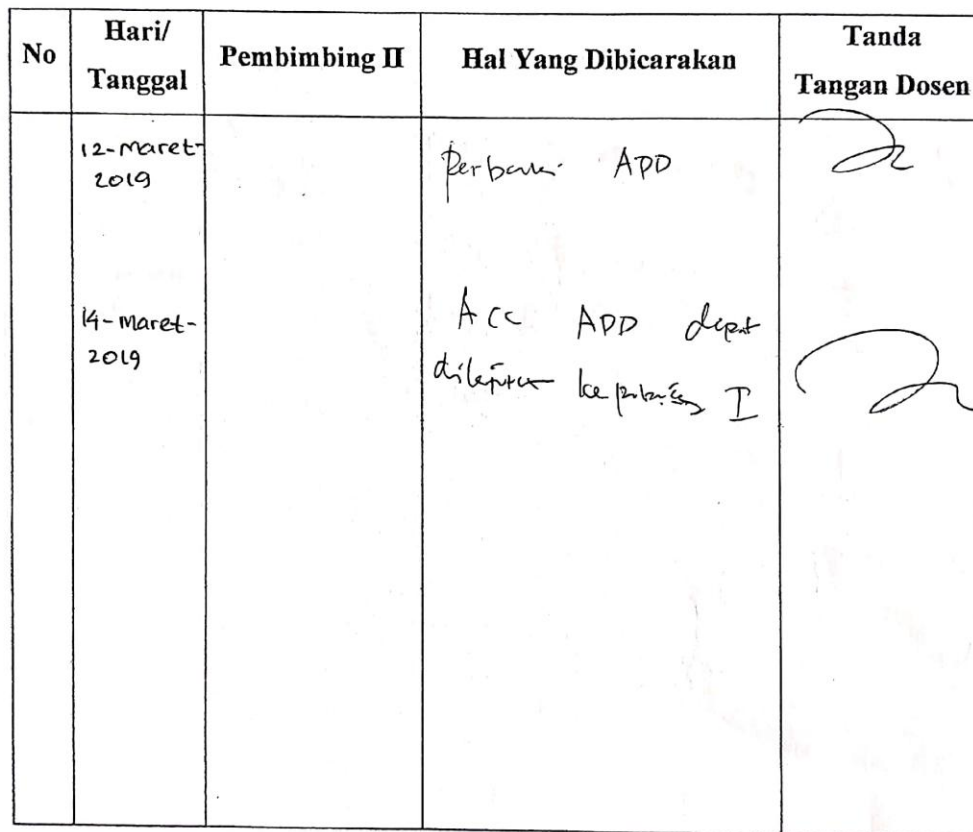 No
Hari/
Tanggal
Pembimbing II
Hal Yang Dibicarakan
Tanda
Tangan Dosen
12-maret-
2019
Perbaiki APD
14-maret-
2019
Acc APD dapat
I